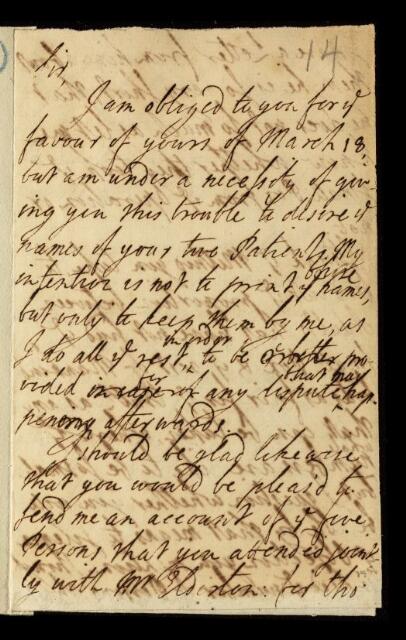 14
Sir,
I am obliged to you for yͤ
favour of yours of March 18.
but am under a necessity of giv-
ing you this trouble to desire yͤ
names of your two Patients. My
intention is not to print yͤ names,
but only to keep them by me, as
I do all yͤ rest, in order to be pro-
vided for any dispute that may hap-
pen afterwards.
I should be glad likewise
that you would be pleas'd to
send me an account of yͤ five
Persons that you attended joint
ly with Mr Elderton: for tho'